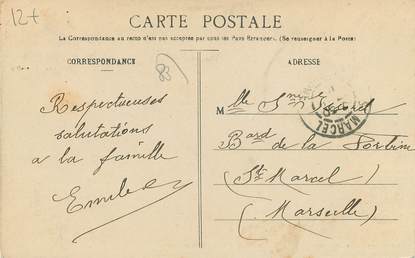 12+
CARTE POSTALE
La Correspondance au recto n'est pas acceptée par tous les Pays Étrangers. (Se renseigner à la Poste)
CORRESPONDANCE
83
Respectueuses
salutations
a la famille
Emile
ADRESSE
Mlle
MARCEL
Bard de la
(St Marcel)
(Marseille)